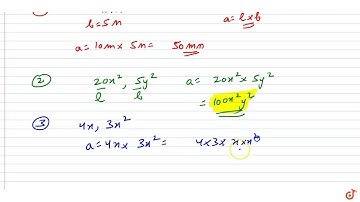 b = 5n a = l × b
a = 10m × 5n = 50mn
② 20x², 5y² a = 20x² × 5y²
l b = 100x²y²
③ 4x, 3x²
a = 4x × 3x² = 4×3× x×x²